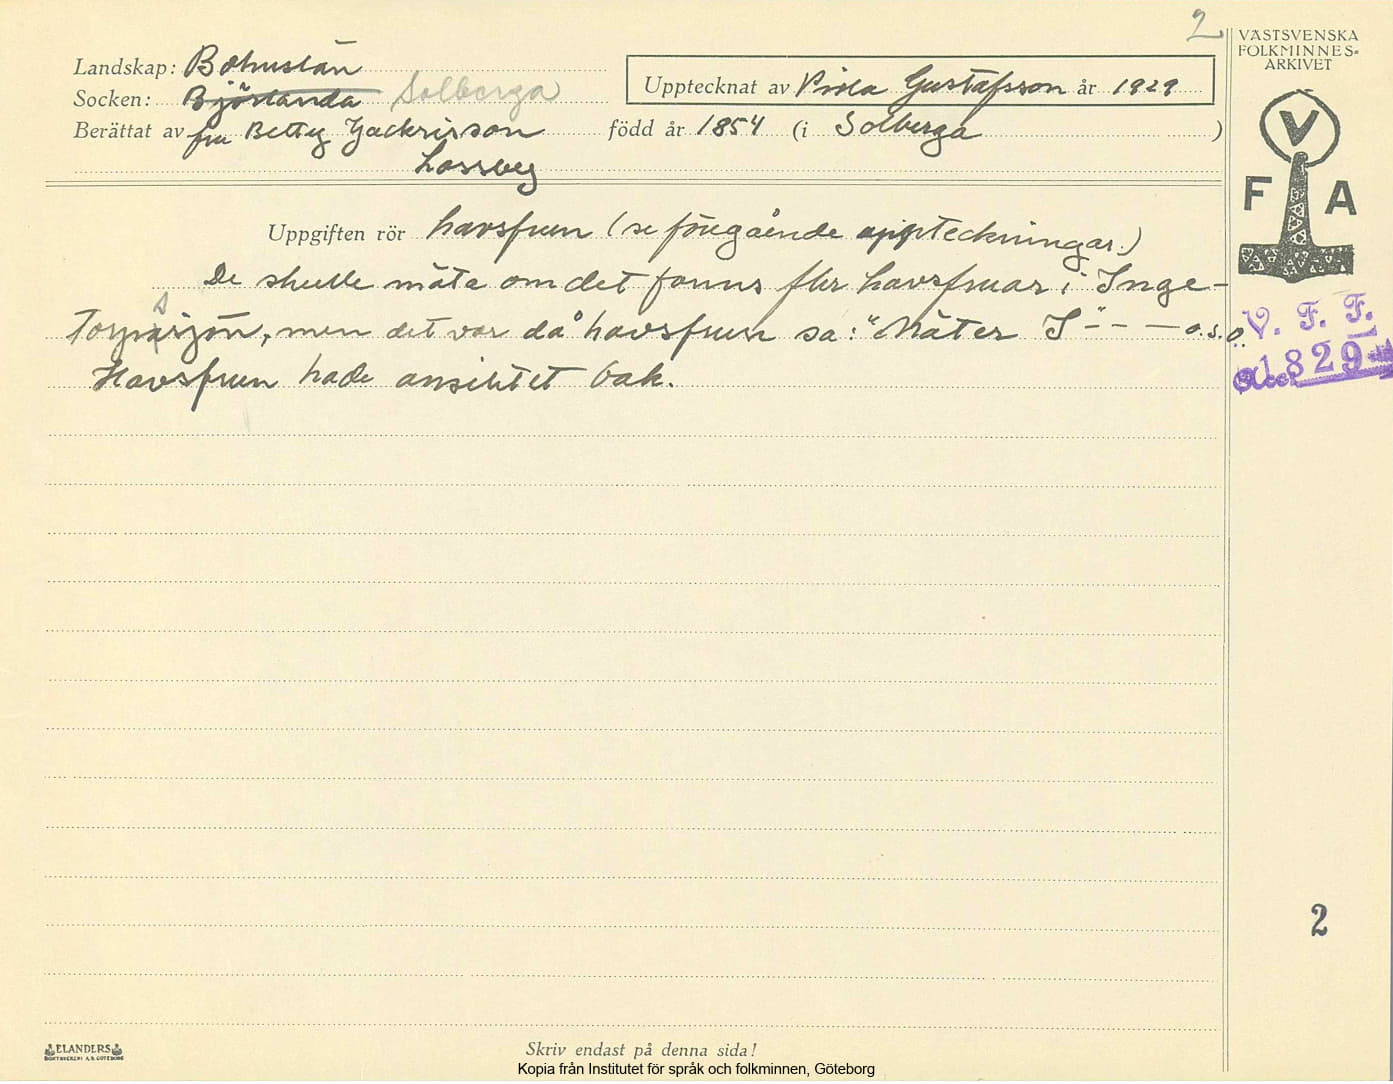 2
VÄSTSVENSKA
FOLKMINNES=
ARKIVET
Landskap: Bohuslän
Socken: Björlanda Solberga
Upptecknat av Viola Gustafsson år 1929
Berättat av fru Betty Zackrisson född år 1854 (i Solberga )
V
F A
Uppgiften rör havsfrun (se föregående uppteckningar.)
De skulle mäta om det fanns fler havsfruar i Inge-
torpasjön, men det var då havsfrun sa: "Mäter I" - - — o.s.v.
Havsfrun hade ansiktet bak.
V. F. F.
Acc. 1829
2
ELANDERS
BOKTRYCKERI A.B. GÖTEBORG
Skriv endast på denna sida!
Kopia från Institutet för språk och folkminnen, Göteborg